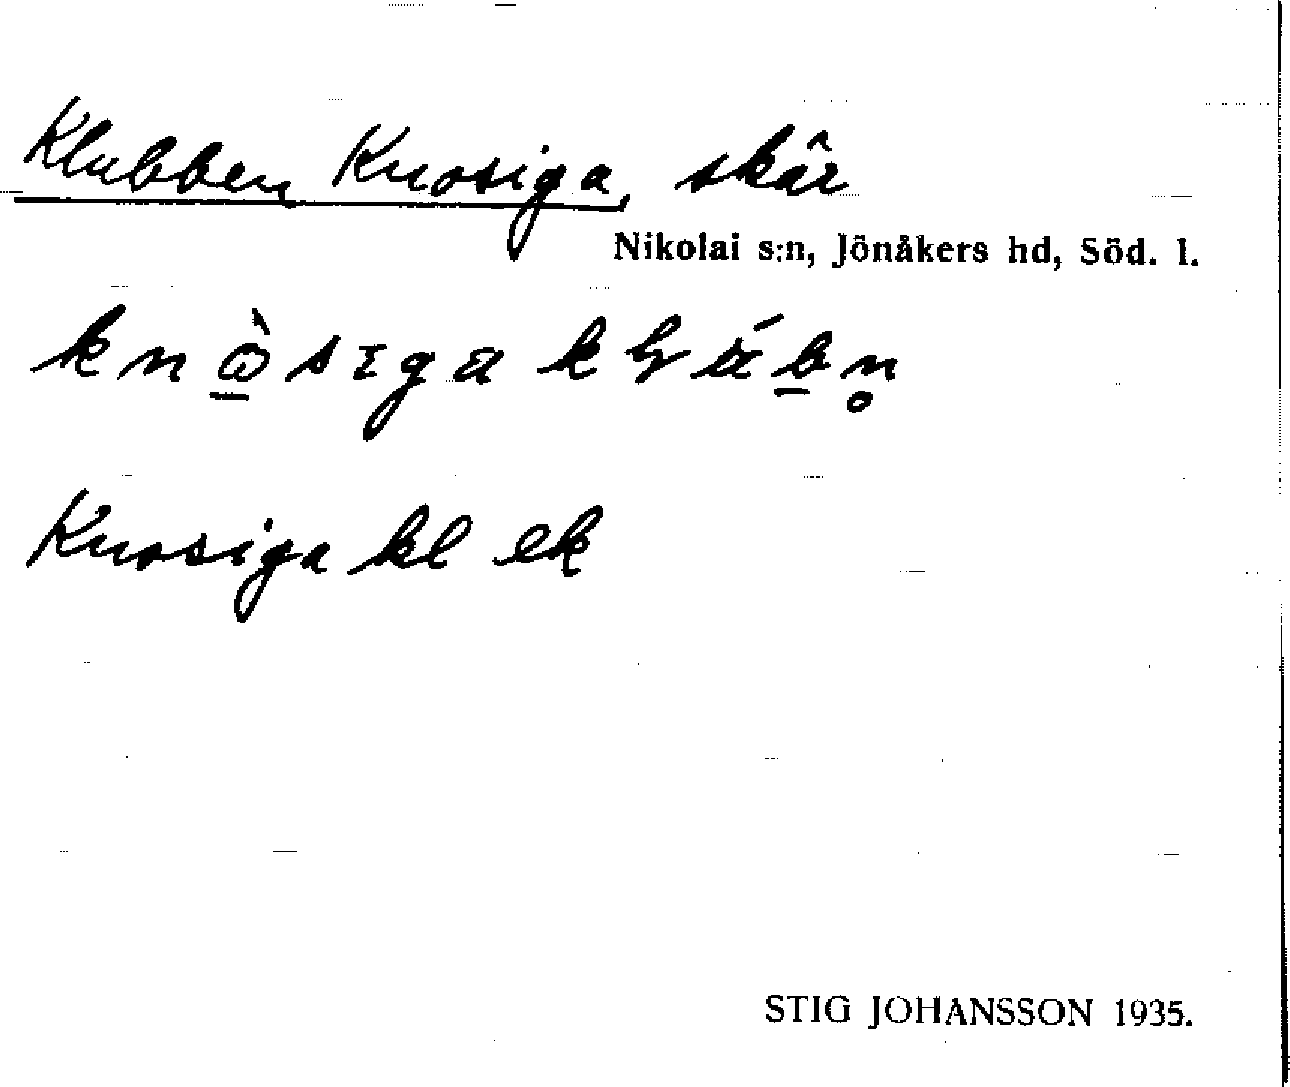 Klubben Knosiga, skär
Nikolai s:n, Jönåkers hd, Söd. l.
Knosiga kl ek
STIG JOHANSSON 1935.